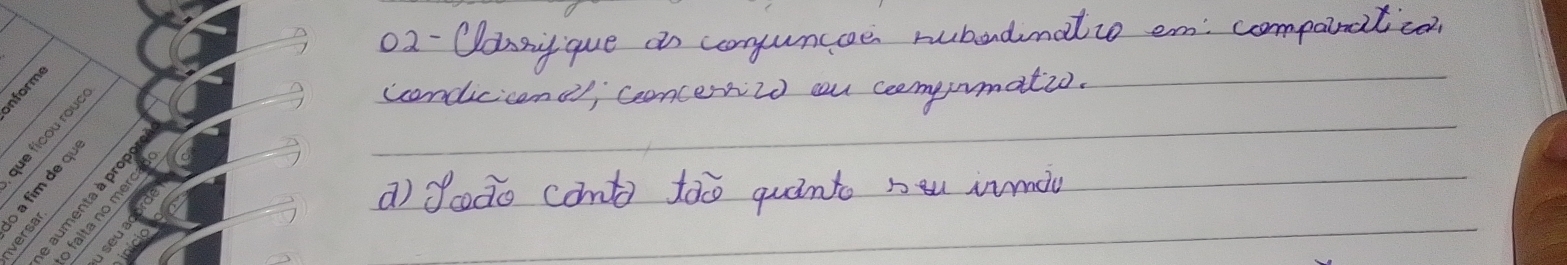 onforme
que ficou rouco.
do a fim de que
nversar.
ne aumenta à proporção
to falta no mercado.
u seu acorde
início
02- Classifique as conjunções subordinativo em: comparativa,
condicional; concessivo ou comfirmativo.
a) João canta tão quanto seu irmão